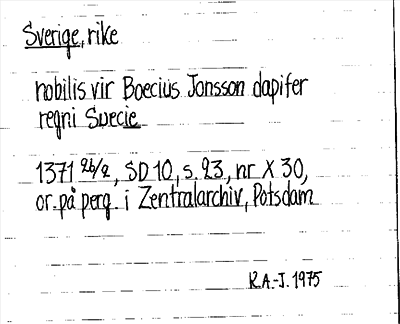 Sverige, rike
nobilis vir Boecius Jonsson dapifer
regni Suecie
1371 26/2, SD 10, s. 23, nr X 30,
or. på perg. i Zentralarchiv, Potsdam
R.A.-J. 1975